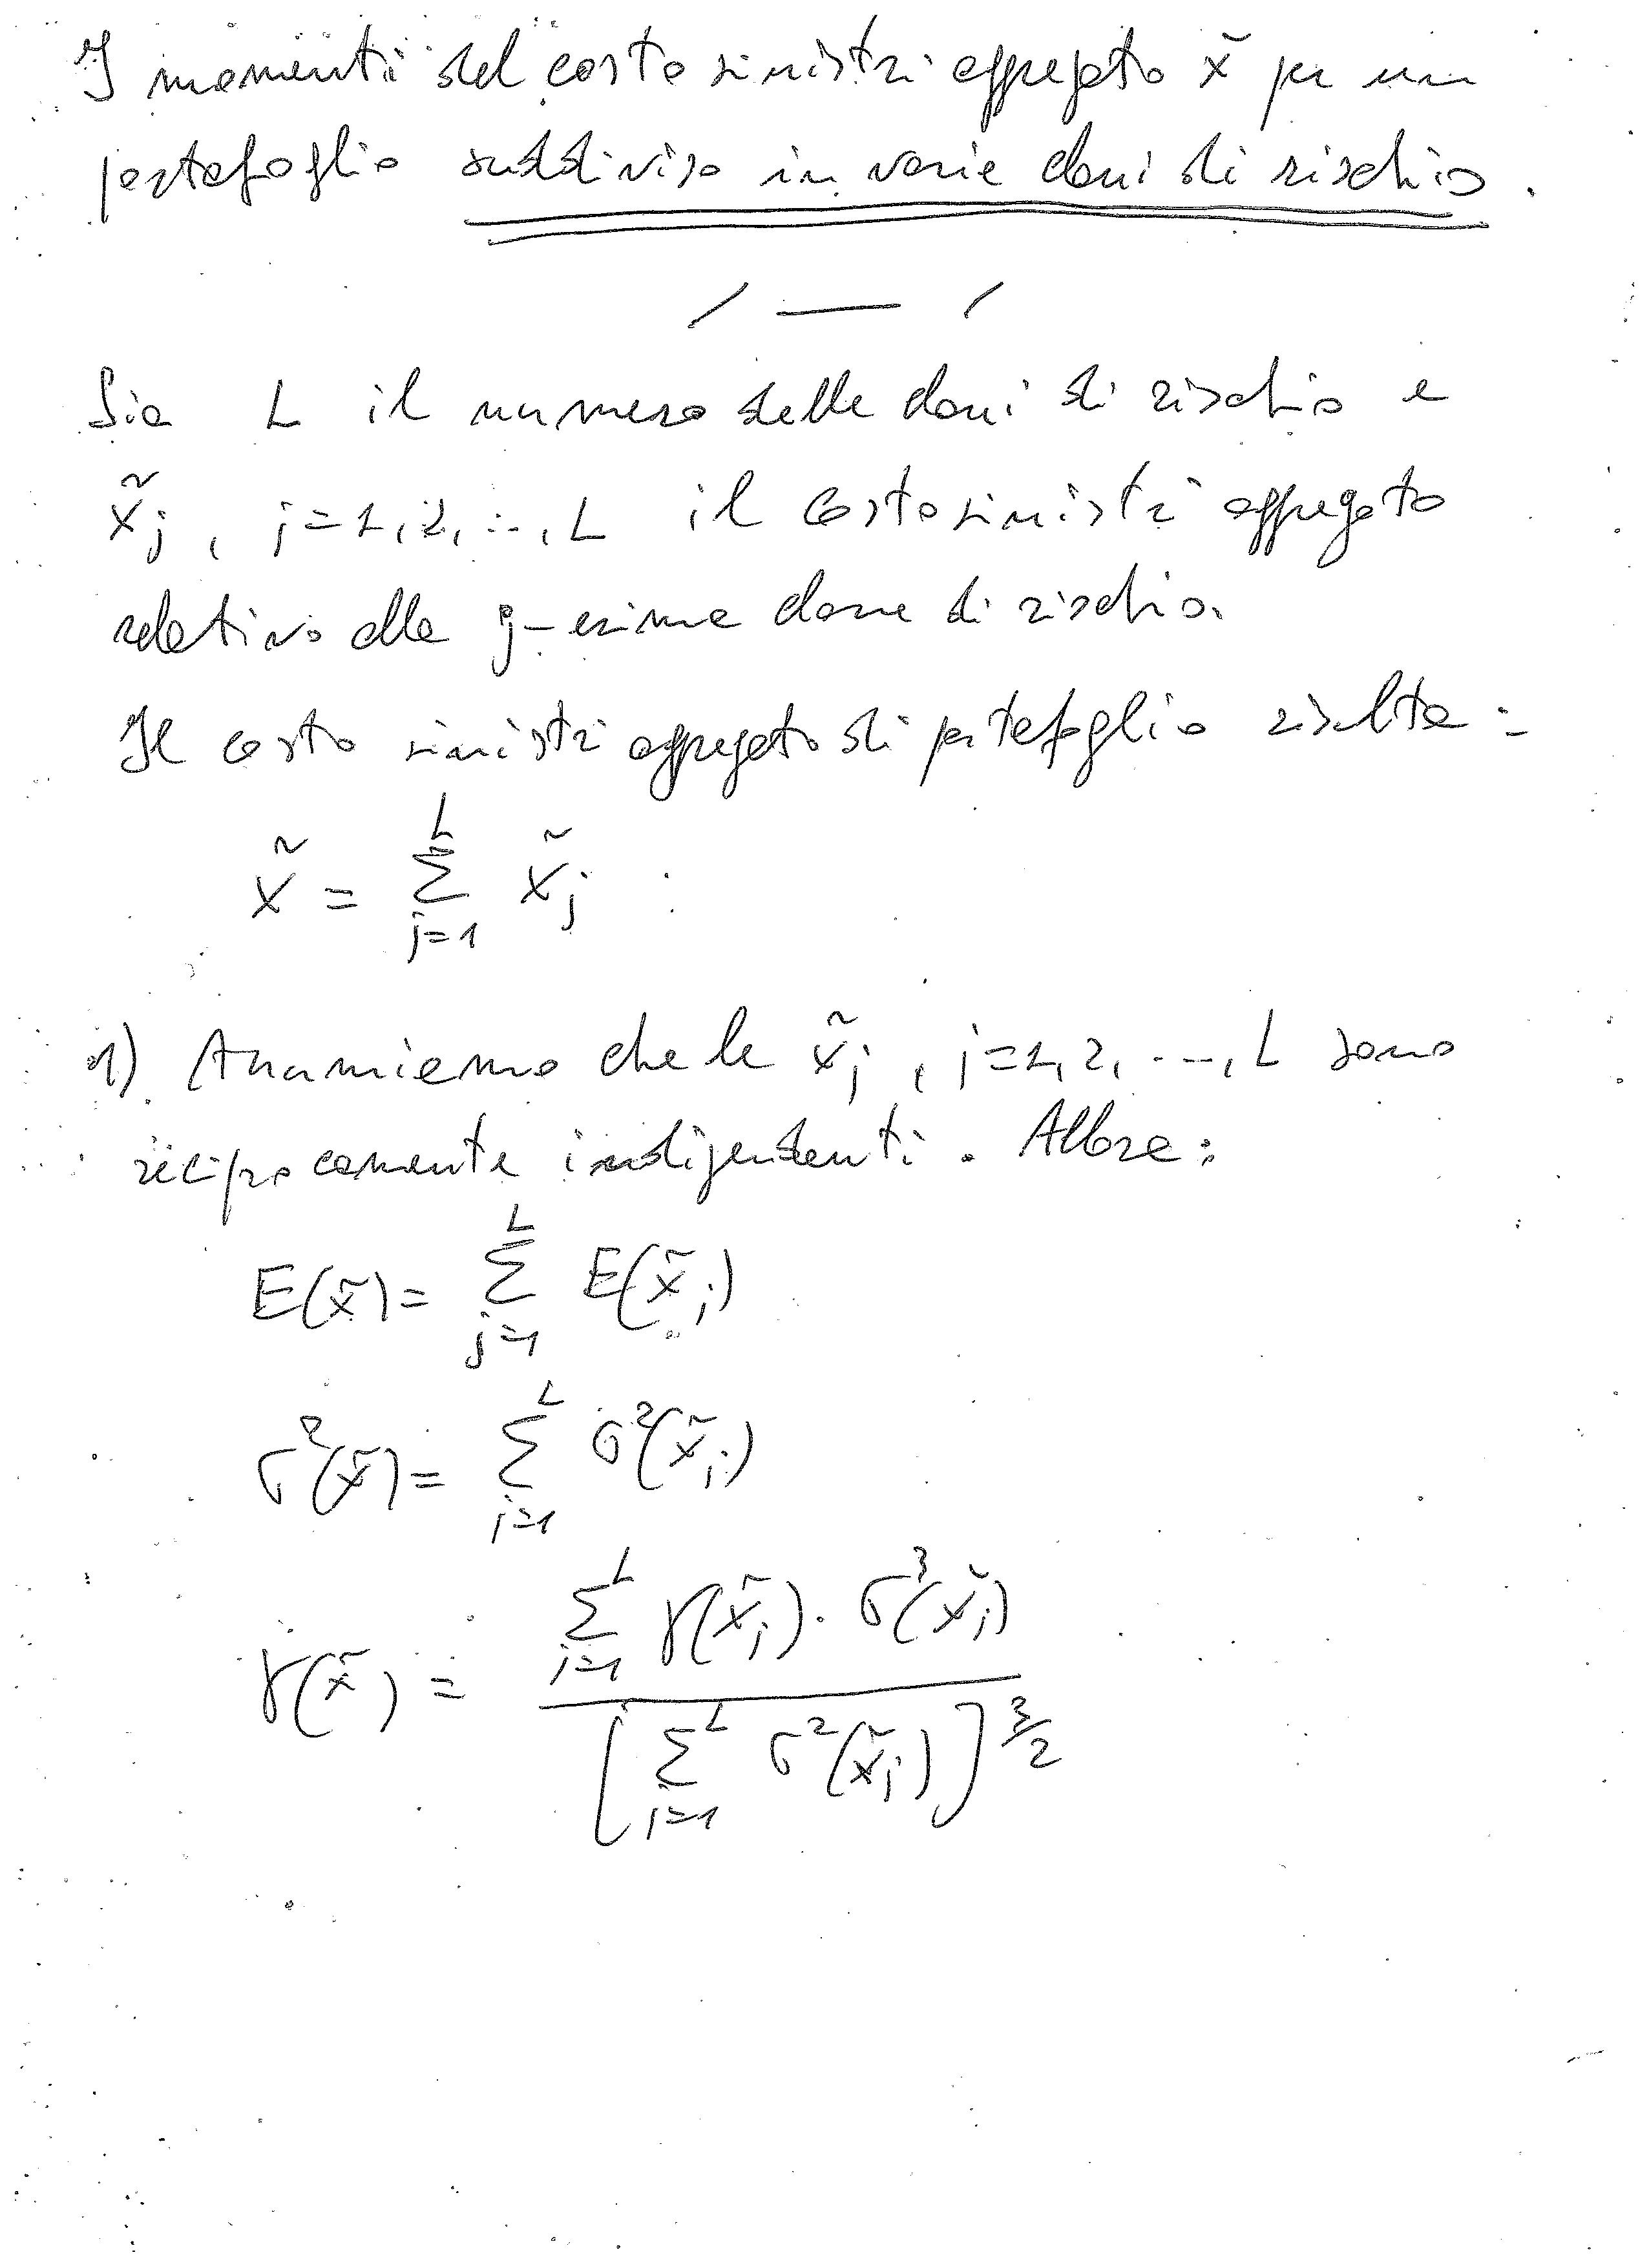 I momenti del costo sinistri aggregato x̃ per un
portafoglio suddiviso in varie classi di rischio.
Sia L il numero delle classi di rischio e
x̃j, j=1,2,...,L il costo sinistri aggregato
relativo alla j-esima classe di rischio.
Il costo sinistri aggregato di portafoglio risulta:
x̃ = Σ_{j=1}^{L} x̃j
1) Assumiamo che le x̃j, j=1,2,...,L sono
reciprocamente indipendenti. Allora:
E(x̃) = Σ_{j=1}^{L} E(x̃j)
σ²(x̃) = Σ_{j=1}^{L} σ²(x̃j)
γ(x̃) = \frac{Σ_{j=1}^{L} γ(x̃j) · σ³(x̃j)}{[Σ_{j=1}^{L} σ²(x̃j)]^{3/2}}